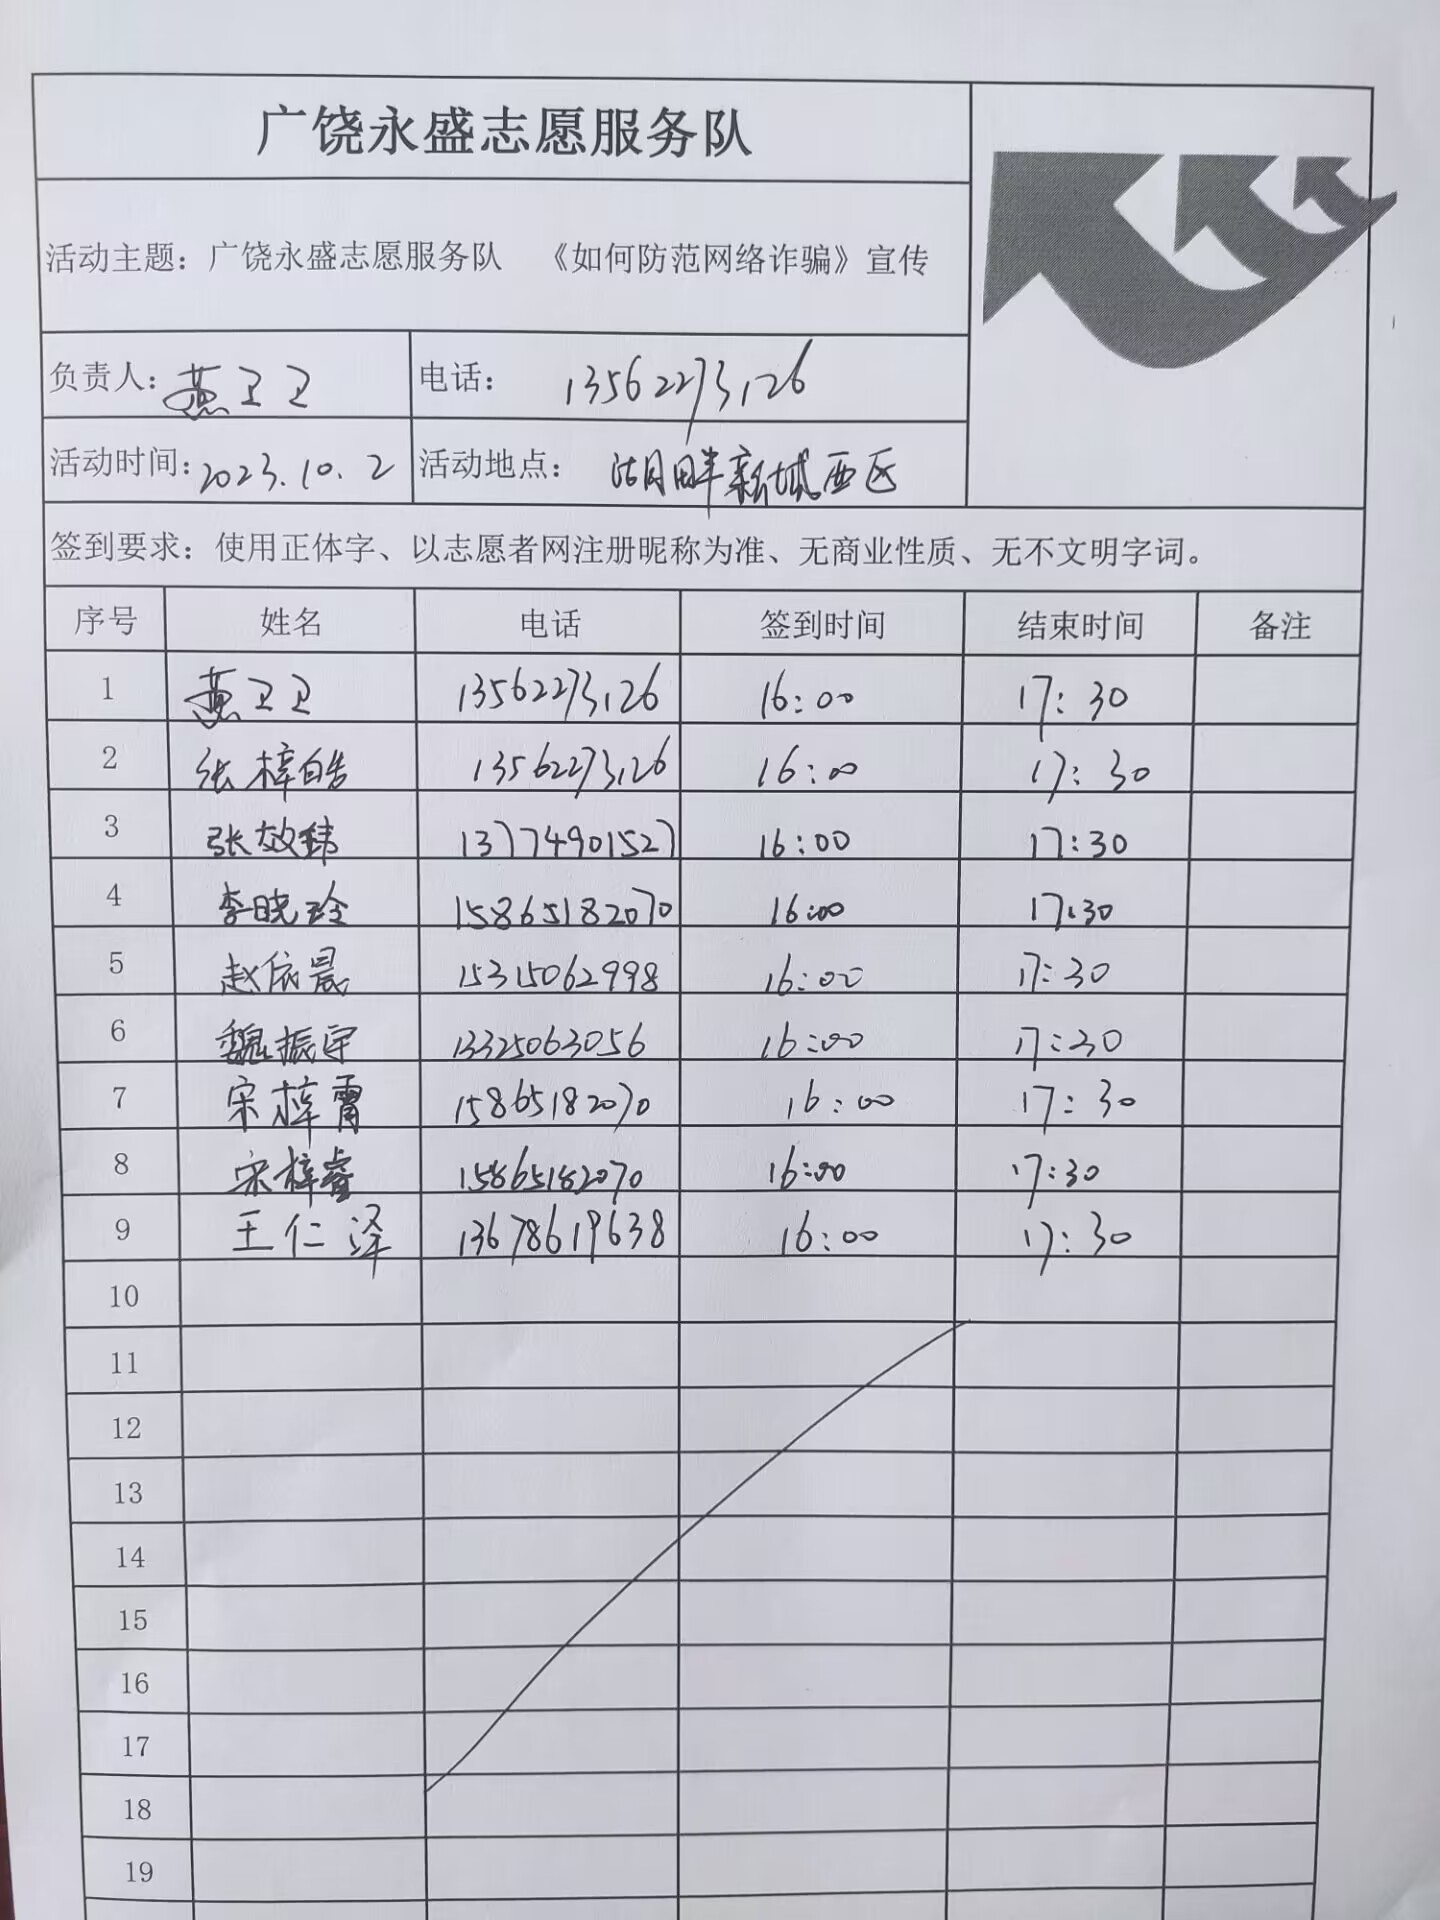 广饶永盛志愿服务队
活动主题：广饶永盛志愿服务队 《如何防范网络诈骗》宣传
负责人：燕卫卫 电话： 13562273126
活动时间：2023.10.2 活动地点： 湖畔新城西区
签到要求：使用正体字、以志愿者网注册昵称为准、无商业性质、无不文明字词。
序号 姓名 电话 签到时间 结束时间 备注
1 燕卫卫 13562273126 16:00 17:30
2 张梓皓 13562273126 16:00 17:30
3 张效玮 13774901527 16:00 17:30
4 李晓玲 15865182070 16:00 17:30
5 赵依晨 15315062998 16:00 17:30
6 魏振宇 13325063056 16:00 17:30
7 宋梓霄 15865182070 16:00 17:30
8 宋梓睿 15865182070 16:00 17:30
9 王仁泽 13678619638 16:00 17:30
10
11
12
13
14
15
16
17
18
19